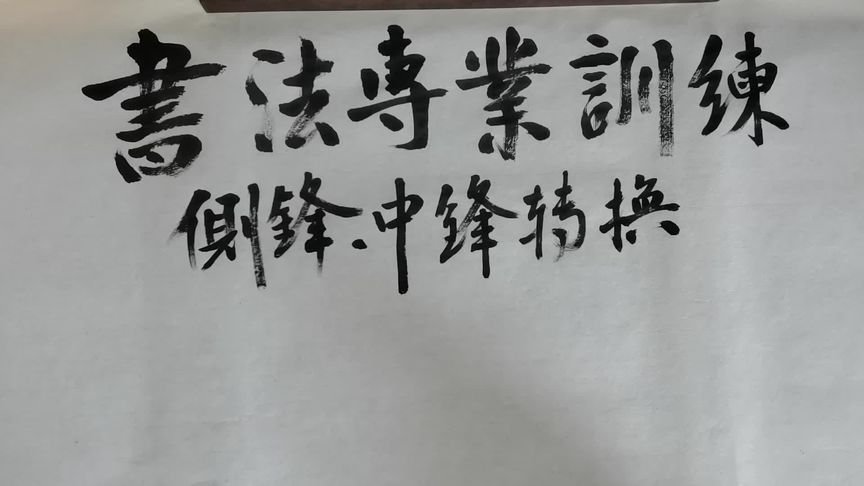 書法專業訓練
側鋒.中鋒转換